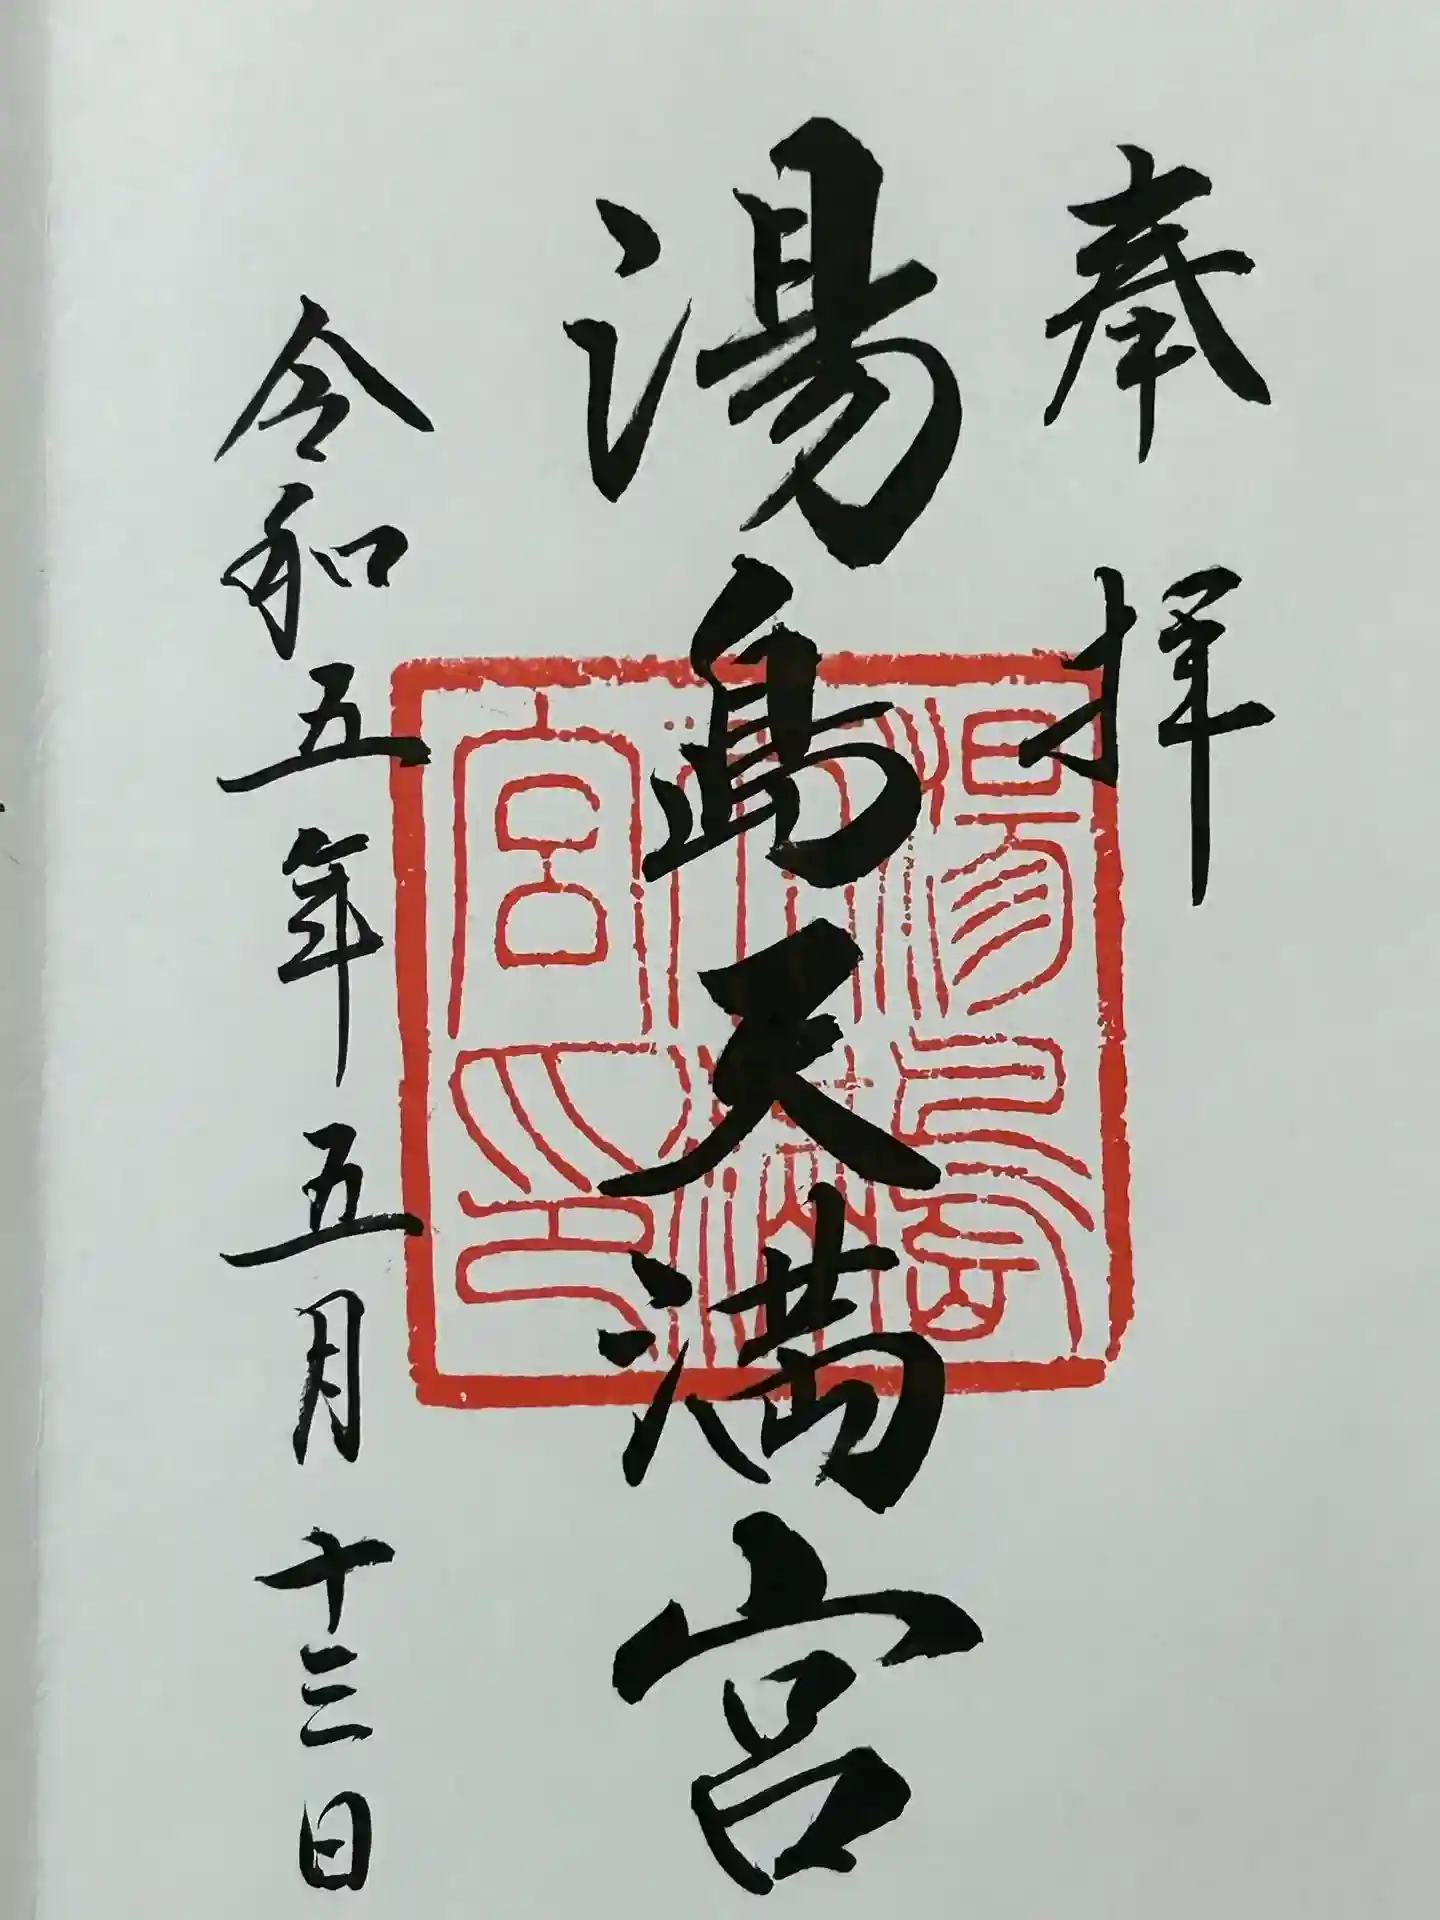 奉拝
湯島天満宮
湯島天満宮之印
令和五年五月十三日